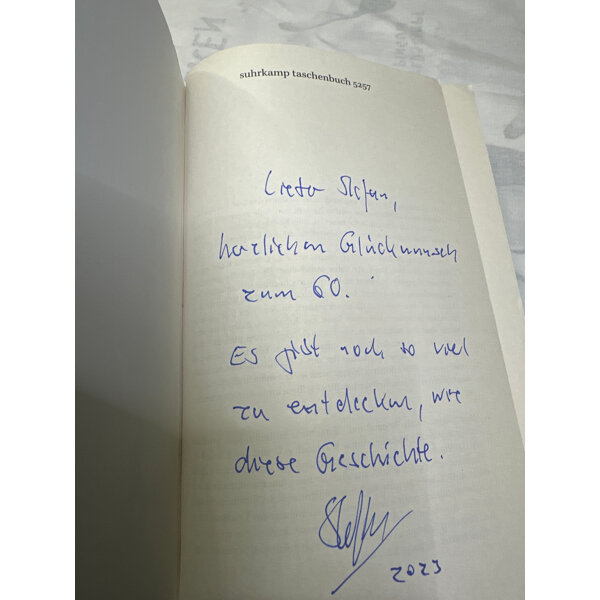 suhrkamp taschenbuch 5257
Lieber Stefan,
herzlichen Glückwunsch
zum 60.
Es gibt noch so viel
zu entdecken, wie
diese Geschichte.
2023